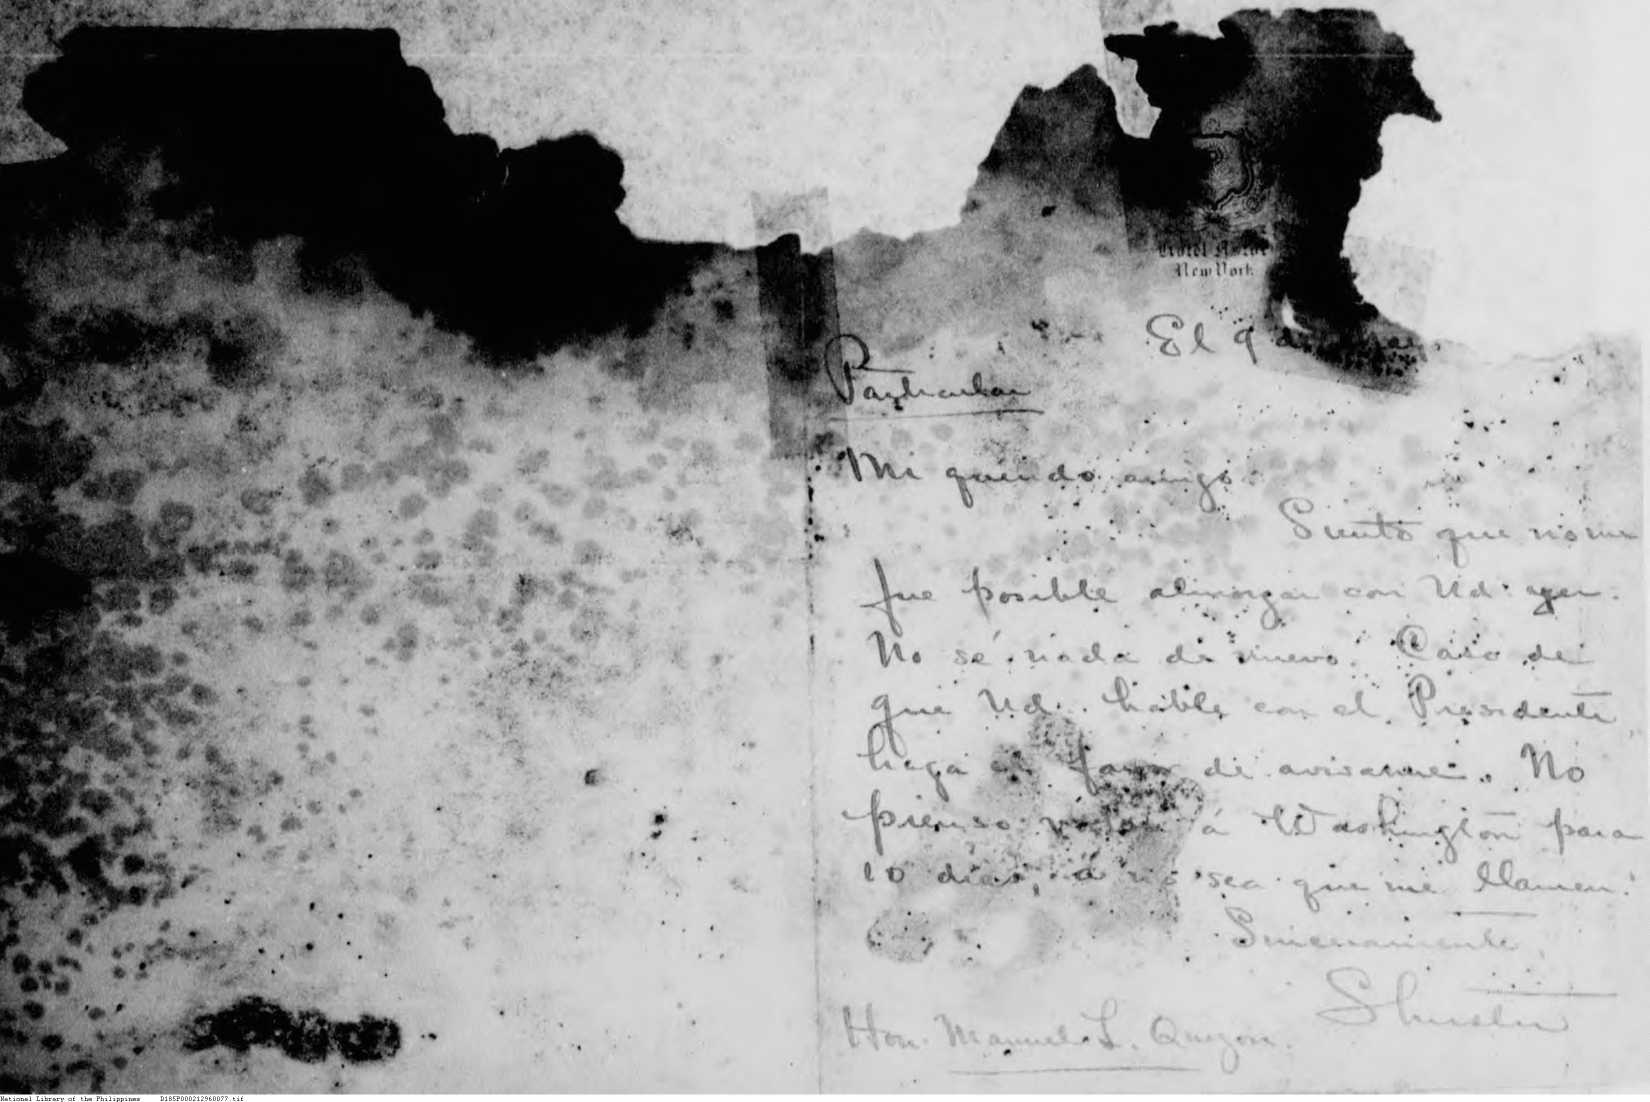 Hotel Astor
New York
El 9 de
Particular
Mi querido amigo:
Siento que no me
fue posible almorzar con Ud. ayer.
No sé nada de nuevo. Caso de
que Ud. hable con el Presidente
haga el favor de avisarme. No
pienso volver á Washington para
10 dias, á no sea que me llamen.
Sinceramente,
Shuster
Hon. Manuel L. Quezon.
National Library of the Philippines D185P000212960077.tif